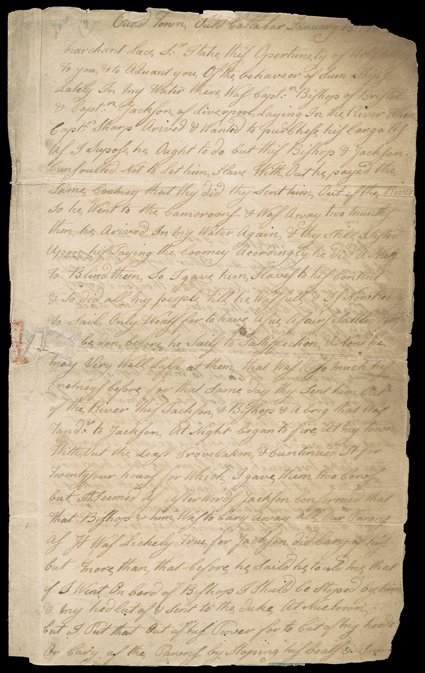 Ould Town, Ould Callabar January 13
marchant Lace, Sr I take this Opertunety of
to you, & to Aquant you Of the behaveor of Sum Ships
Lately In my Water there Was Captn Bishop of Bristol
& Captn Jackson of Liverpool Laying In the River When
Captn Sharp Arived & Wanted to purchese his Cargo As
I Supose he Ought to do but this Bishop & Jackson
Cunsoulted Not to Let him Slave With Out he payed the
Same Coomey that thy did thy Sent him Out of the River
So he Went to the Camoroons & Was Away two munths
then he Arived In my Water Again & thy Still Isisted
Upon his Paying the Coomey Acordingly he did
to Blind them So I gave him Slaves to his Content
& So did all my peeple, till he Was full & Is Now
to Sail Only Weats for to have
before he Sails to Sattisfection & Now he
may Very Well Laffe at them that Was So much his
before for that Same day thy Sent him Out
of the River this Jackson & Bishop & A brig that Was
tandr to Jackson At Night began to fire At my town
With Out the Least Provecation & Cuntineued It for
twentyfour hours for Which I gave them two Cows
but It Seemed As Afterwords Jackson Confirmed that
that Bishop & him Was to Cary Away All Our Pawns
As It Was Lickely True for Jackson did Cary
but more than that before he Saild he tould me that
if I Went On bord of Bishop I Shuld be Stoped by him
& my hed Cut of & Sent to the Duke At Nuetown
but I Put that Out of his Power for to Cut of my hed
Or Cary of the Pawns by Stoping his boats